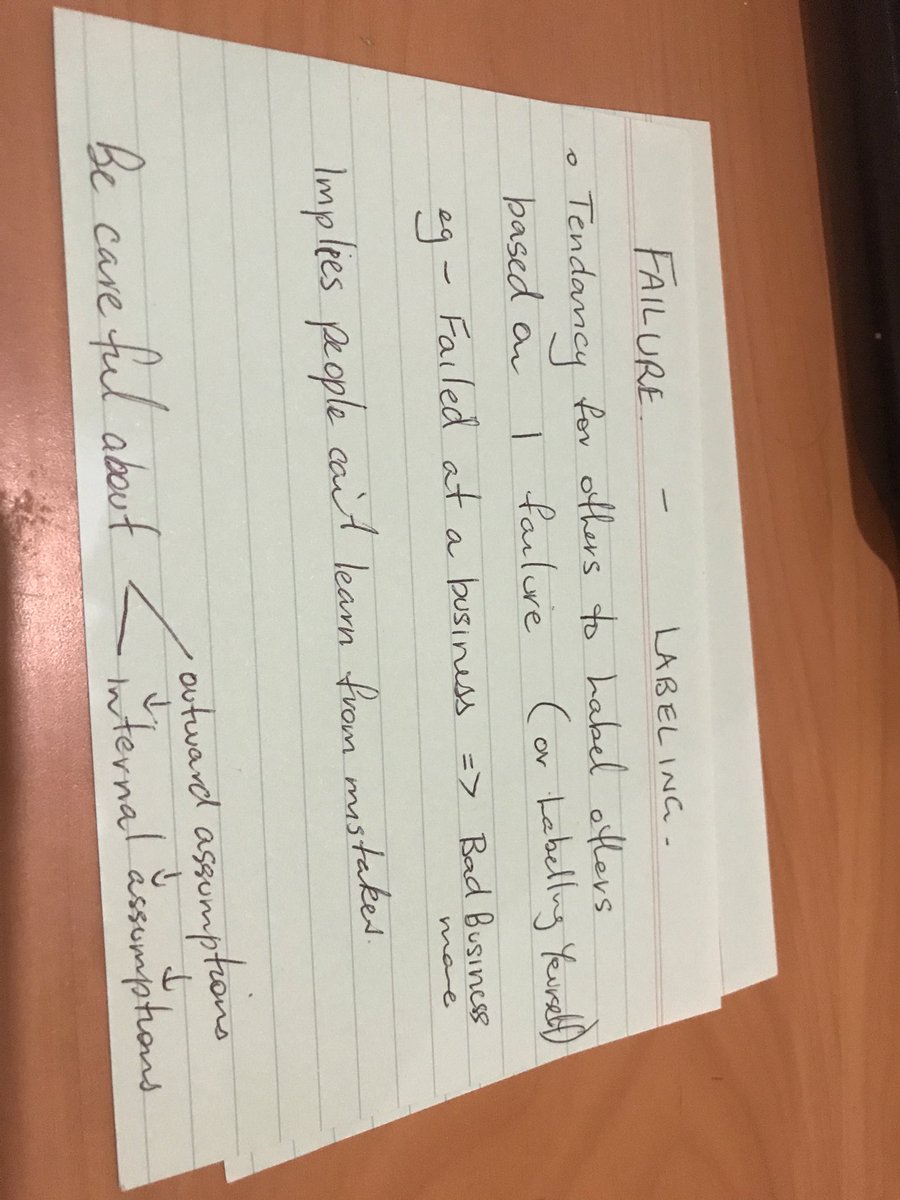 FAILURE - LABELING.
o Tendancy for others to Label others
based on 1 failure (or Labelling Yourself)
eg - Failed at a business => Bad Business
move
Implies people can't learn from mistakes.
outward assumptions
↓ ↓ ↓
Be careful about < internal assumptions